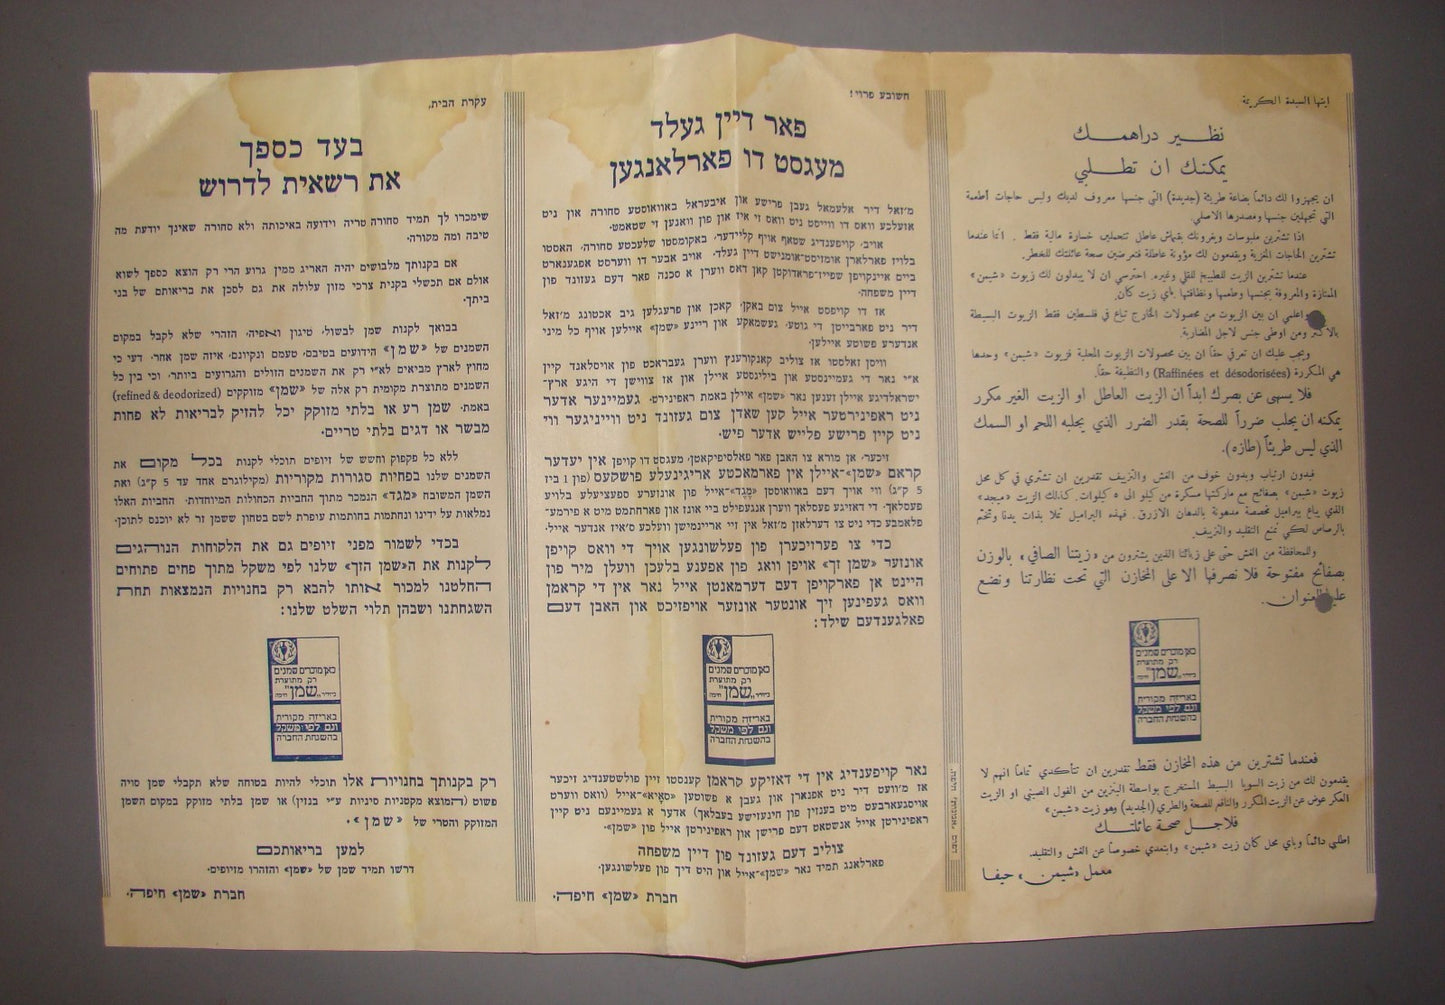 עקרת הבית,
בעד כספך
את רשאית לדרוש
שימכרו לך תמיד סחורה טריה וידועה באיכותה ולא סחורה שאינך יודעת מה
טיבה ומה מקורה.
אם בקנותך מלבושים יהיה האריג ממין גרוע הרי רק הוצא כספך לשוא
אולם אם תכשלי בקנית צרכי מזון עלולה את גם לסכן את בריאותם של בני
ביתך.
בבואך לקנות שמן לבשול, טיגון ואפיה, הזהרי שלא לקבל במקום
השמנים של «שמן» הידועים בטיבם, טעמם ונקיונם, איזה שמן אחר. דעי כי
מחוץ לארץ מביאים לא״י רק את השמנים הזולים והגרועים ביותר, וכי בין כל
השמנים מתוצרת מקומית רק אלה של «שמן» מזוקקים (refined & deodorized)
באמת. שמן רע או בלתי מזוקק יכל להזיק לבריאות לא פחות
מבשר או דגים בלתי טריים.
ללא כל פקפוק וחשש של זיופים תוכלי לקנות בכל מקום את
השמנים שלנו בפחיות סגורות מקוריות (מקילוגרם אחד עד 5 ק״ג) ואת
השמן המשובח «מגד» הנמכר מתוך החביות הכחולות המיוחדות. החביות האלו
נמלאות על ידינו ונחתמות בחותמות עופרת לשם בטחון ששמן זר לא יוכנס לתוכן.
בכדי לשמור מפני זיופים גם את הלקוחות הנוהגים
לקנות את ה«שמן הזך» שלנו לפי משקל מתוך פחים פתוחים
החלטנו למכור אותו להבא רק בחנויות הנמצאות תחת
השגחתנו ושבהן תלוי השלט שלנו:
כאן מוכרים שמנים
רק מתוצרת
„שמן"
חיפה
באריזה מקורית
וגם לפי משקל
בהשגחת החברה
רק בקנותך בחנויות אלו תוכלי להיות בטוחה שלא תקבלי שמן סויה
פשוט (המוצא מקטניות סיניות ע״י בנזין) או שמן בלתי מזוקק במקום השמן
המזוקק והטרי של «שמן».
למען בריאותכם
דרשו תמיד שמן של «שמן» והזהרו מזיופים.
חברת «שמן» חיפה.
חשובע פרוי!
פאר דיין געלד
מעגסט דו פארלאנגען
מ׳זאל דיר אלעמאל געבן פרישע און איבעראל באוואוסטע סחורה און ניט
אזעלכע וואס דו ווייסט ניט וואס זי איז און פון וואנען זי שטאמט.
אויב, קויפענדיג שטאף אויף קליידער, באקומסטו שלעכטע סחורה, האסטו
בלויז פארלארן אומזיסט-אומנישט דיין געלד. אויב אבער דו ווערסט אפגענארט
ביים איינקויפן שפייז-פראדוקטן קאן דאס ווערן א סכנה פאר דעם געזונד פון
דיין משפחה.
אז דו קויפסט אייל צום באקן, קאכן און פרעגלען גיב אכטונג מ׳זאל
דיר ניט פארבייטן די גוטע, געשמאקע און ריינע «שמן» איילען אויף כל מיני
אנדערע פשוטע איילען.
וויסן זאלסטו אז צוליב קאנקורענץ ווערן געבראכט פון אויסלאנד קיין
א״י נאר די געמיינסטע און ביליגסטע איילן און אז צווישן די היגע ארץ-
ישראלדיגע איילן זענען נאר «שמן» איילען באמת ראפינירט. געמיינער אדער
ניט ראפינירטער אייל קען שאדן צום געזונד ניט ווייניגער ווי
ניט קיין פרישע פלייש אדער פיש.
זיכער, אן מורא צו האבן פאר פאלסיפיקאטן, מעגסט דו קויפן אין יעדער
קראם «שמן»-איילן אין פארמאכטע אריגינעלע פושקעס (פון 1 ביז
5 ק״ג) ווי אויך דעם באוואוסטן «מגד»-אייל פון אונזערע ספעציעלע בלויע
פעסלאך. די דאזיגע פעסלאך ווערן אנגעפילט ביי אונז און פארחתמט מיט א פירמע-
פלאמבע כדי ניט צו דערלאזן מ׳זאל אין זיי אריינמישן וועלכע ס׳איז אנדער אייל.
כדי צו פערזיכערן פון פעלשונגען אויך די וואס קויפן
אונזער «שמן זך» אויפן וואג פון אפענע בלעכן וועלן מיר פון
היינט אן פארקויפן דעם דערמאנטן אייל נאר אין די קראמען
וואס געפינען זיך אונטער אונזער אויפזיכט און האבן דעם
פאלגענדעם שילד:
כאן מוכרים שמנים
רק מתוצרת
„שמן"
חיפה
באריזה מקורית
וגם לפי משקל
בהשגחת החברה
נאר קויפענדיג אין די דאזיקע קראמען קענסטו זיין פולשטענדיג זיכער
אז מ׳וועט דיר ניט אפנארן און געבן א פשוטען «סאיא»-אייל (וואס ווערט
אויסגעארבעט מיט בענזין פון חינעזישע בעבלאך) אדער א געמיינעם ניט קיין
ראפינירטן אייל אנשטאט דעם פרישן און ראפינירטן אייל פון «שמן».
צוליב דעם געזונד פון דיין משפחה
פארלאנג תמיד נאר «שמן»-אייל און היט דיך פון פעלשונגען.
חברת «שמן» חיפה.
ايتها السيدة الكريمة
نظير دراهمك
يمكنك ان تطلبي
ان يجهزوا لك دائماً بضاعة طريئة (جديدة) التي جنسها معروف لديك وليس حاجات أطعمة
التي تجهلين جنسها ومصدرها الاصلي.
اذا تشترين ملبوسات ويغرونك بقماش عاطل تتحملين خسارة مالية فقط . أما عندما
تشترين الحاجات المغزية ويقدمون لك مؤونة عاطلة فتعرضين صحة عائلتك للخطر.
عندما تشترين الزيت للطبيخ للقلي وغيره، احترسي ان لا يبدلون لك زيوت «شيمن»
الممتازة والمعروفة بجنسها وطعمها ونظافتها بأي زيت كان.
واعلمي ان بين الزيوت من محصولات الخارج تباع في فلسطين فقط الزيوت البسيطة
بالاكثر ومن اوطى جنس لاجل المضاربة.
ويجب عليك ان تعرفي حقاً ان بين محصولات الزيوت المحلية فزيوت «شيمن» وحدها
هي المكررة (Raffinées et désodorisées) والنظيفة حقاً.
فلا يسهى عن بصرك ابداً ان الزيت العاطل او الزيت الغير مكرر
يمكنه ان يجلب ضرراً للصحة بقدر الضرر الذي يجلبه اللحم او السمك
الذي ليس طريئاً (طازه).
فبدون ارتياب وبدون خوف من الغش والتزييف تقدرين ان تشتري في كل محل
زيوت «شيمن» بصفائح مع ماركتها مسكرة من كيلو الى ٥ كيلوات. كذلك الزيت «ميجد»
الذي يباع ببراميل مخصصة مدهونة بالدهان الازرق. فهذه البراميل تملا بذات يدنا وتختم
بالرصاص لكي تمنع التقليد والتزييف.
وللمحافظة من الغش حتى على زبائننا الذين يشترون من «زيتنا الصافي» بالوزن
بصفائح مفتوحة فلا نصرفها الا على المخازن التي تحت نظارتنا ونضع
عليها العنوان.
כאן מוכרים שמנים
רק מתוצרת
„שמן"
חיפה
באריזה מקורית
וגם לפי משקל
בהשגחת החברה
فعندما تشترين من هذه المخازن فقط تقدرين ان تتأكدي تماماً انهم لا
يقدمون لك من زيت السويا البسيط المستخرج بواسطة البنزين من الفول الصيني او الزيت
العكر عوض عن الزيت المكرر والنافع للصحة والطري (الجديد) وهو زيت «شيمن»
فلاجل صحة عائلتك
اطلبي دائماً وبأي محل كان زيت «شيمن» وابتعدي خصوصاً عن الغش والتقليد.
معمل «شيمن» حيفا